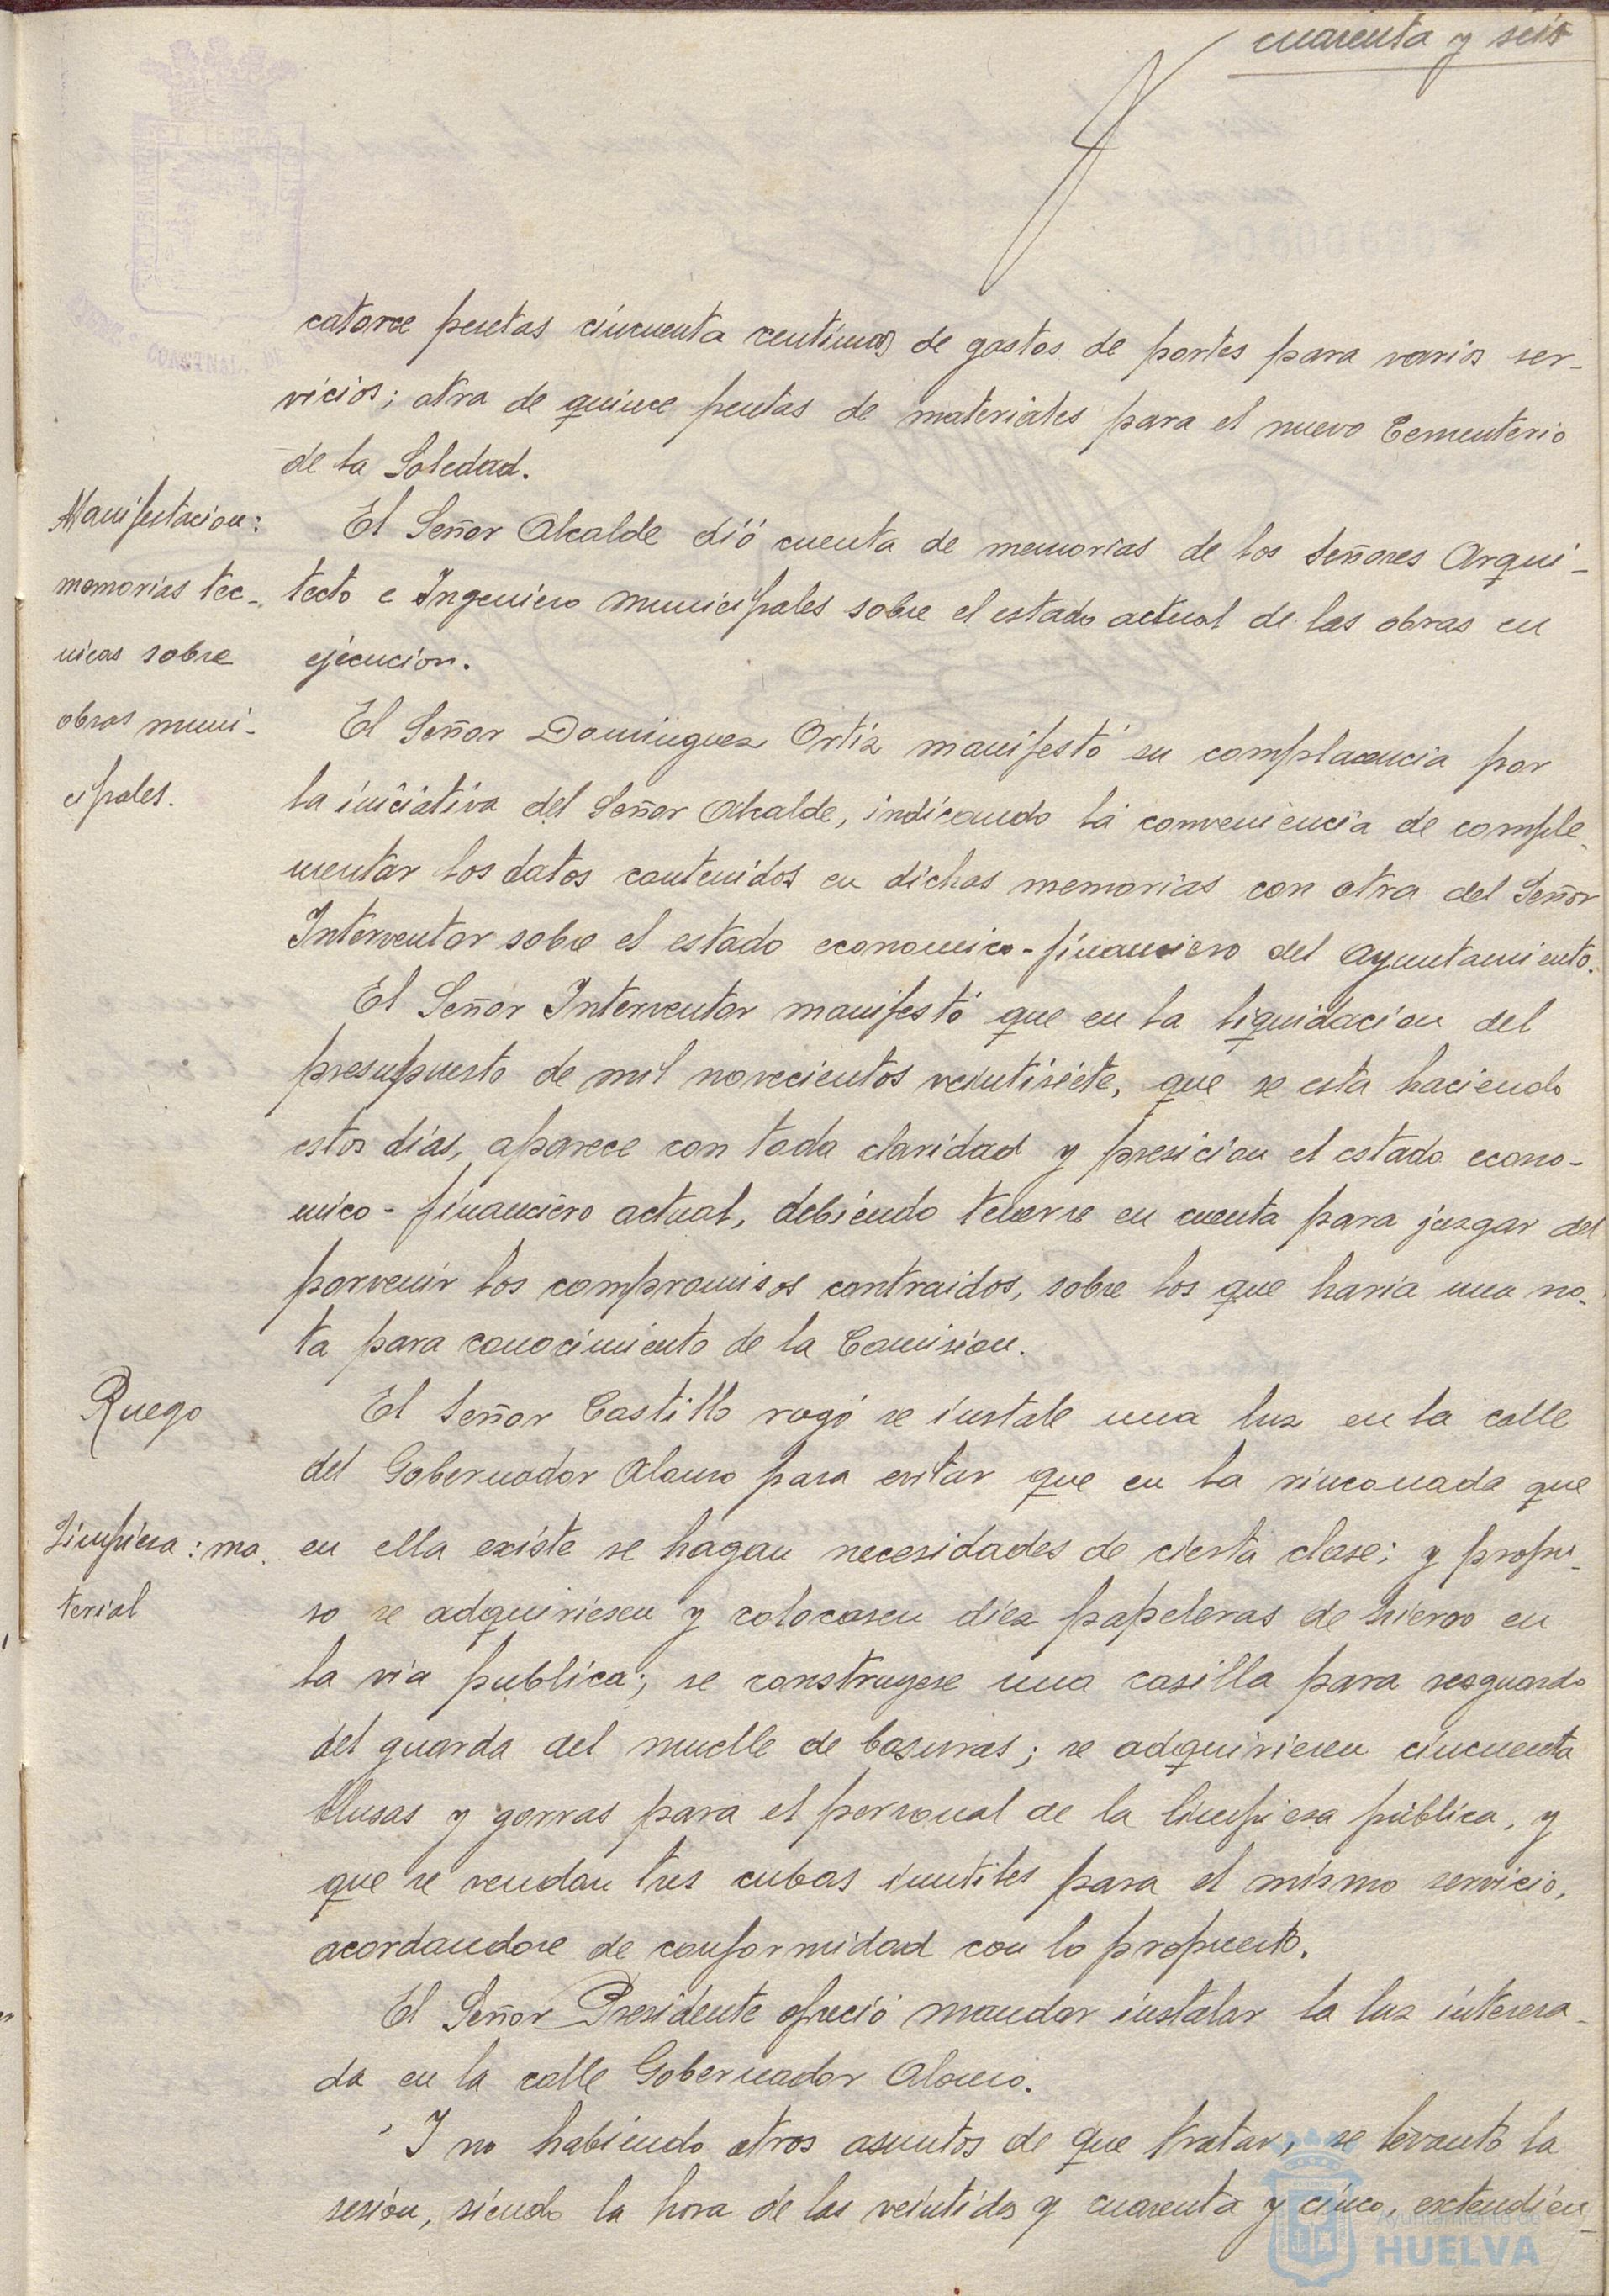 cuarenta y seis
catorce pesetas cincuenta centimos de gastos de portes para varios ser-
vicios; otra de quince pesetas de materiales para el nuevo Cementerio
de la Soledad.
Manifestacion:
memorias tec-
nicas sobre
obras muni-
cipales.
El Señor Alcalde dió cuenta de memorias de los Señores Arqui-
tecto e Ingeniero municipales sobre el estado actual de las obras en
ejecucion.
El Señor Dominguez Ortiz manifestó su complacencia por
la iniciativa del Señor Alcalde, indicando la conveniencia de comple-
mentar los datos contenidos en dichas memorias con otra del Señor
Interventor sobre el estado economico-financiero del Ayuntamiento.
El Señor Interventor manifestó que en la liquidacion del
presupuesto de mil novecientos veintisiete, que se esta haciendo
estos dias, aparece con toda claridad y presicion el estado econo-
mico-financiero actual, debiendo tenerse en cuenta para juzgar del
porvenir los compromisos contraidos, sobre los que haria una no-
ta para conocimiento de la Comision.
Ruego
El Señor Castillo rogó se instale una luz en la calle
del Gobernador Alonso para evitar que en la rinconada que
Limpieza: ma-
terial
en ella existe se hagan necesidades de cierta clase; y propu-
so se adquiriesen y colocasen diez papeleras de hierro en
la via publica; se construyese una casilla para resguardo
del guarda del muelle de basuras; se adquiriesen cincuenta
blusas y gorras para el personal de la limpieza pública, y
que se vendan tres cubas inutiles para el mismo servicio,
acordandose de conformidad con lo propuesto.
El Señor Presidente ofreció mandar instalar la luz interesa-
da en la calle Gobernador Alonso.
Y no habiendo otros asuntos de que tratar, se levantó la
sesión, siendo la hora de las veintidos y cuarenta y cinco, extendien-
Ayuntamiento de
HUELVA